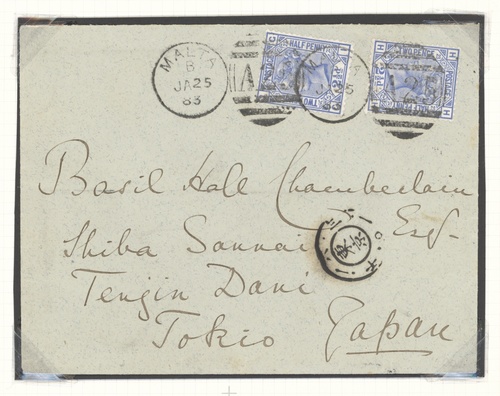 MALTA
B
JA 25
83
HALF PENNY
Basil Hall Chamberlain
Esq.
Shiba Sannai
Tenjin Dani
Tokio Japan